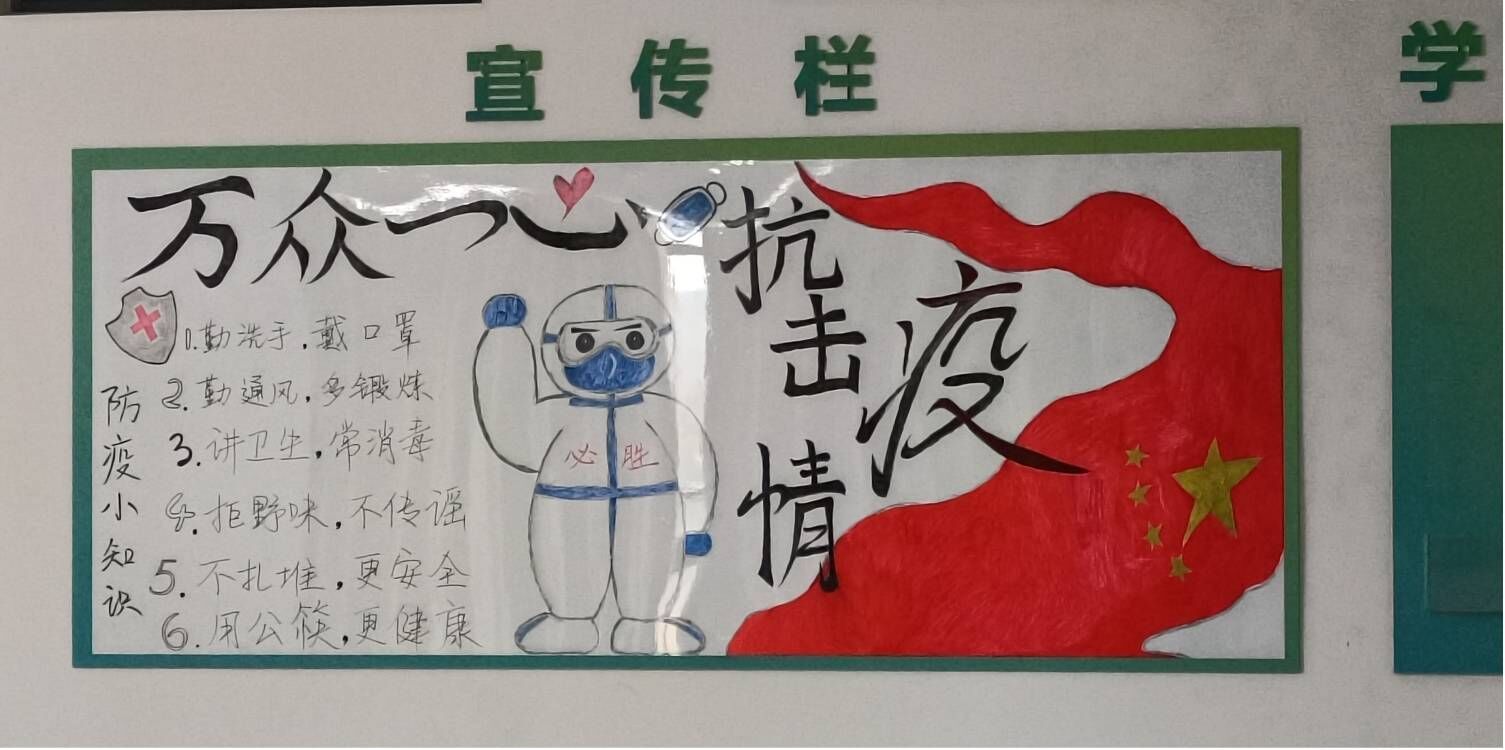 宣传栏
学
万众一心
抗击疫情
防疫小知识
1.勤洗手,戴口罩
2.勤通风,多锻炼
3.讲卫生,常消毒
4.拒野味,不传谣
5.不扎堆,更安全
6.用公筷,更健康
必胜